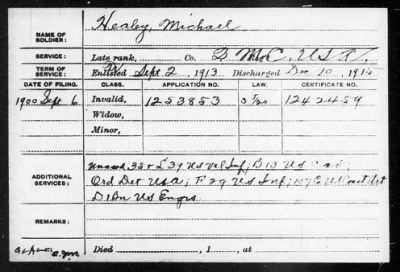 NAME OF SOLDIER: Healy, Michael
SERVICE: Late rank, Co. D M.C. U.S.
TERM OF SERVICE: Enlisted Sept 2, 1913, Discharged Dec 10, 191
DATE OF FILING. CLASS. APPLICATION NO. LAW. CERTIFICATE NO.
1900 Sept 6 Invalid, 1253853 1242459
Widow,
Minor,
ADDITIONAL SERVICES: Unassd 35 & L 39 US Vol Inf; B 13 U S Cav;
Ord Det USA; F 29 U S Inf; 107 C U S Coast Art
D 1 Bn US Engrs
REMARKS:
Died , 1 , at